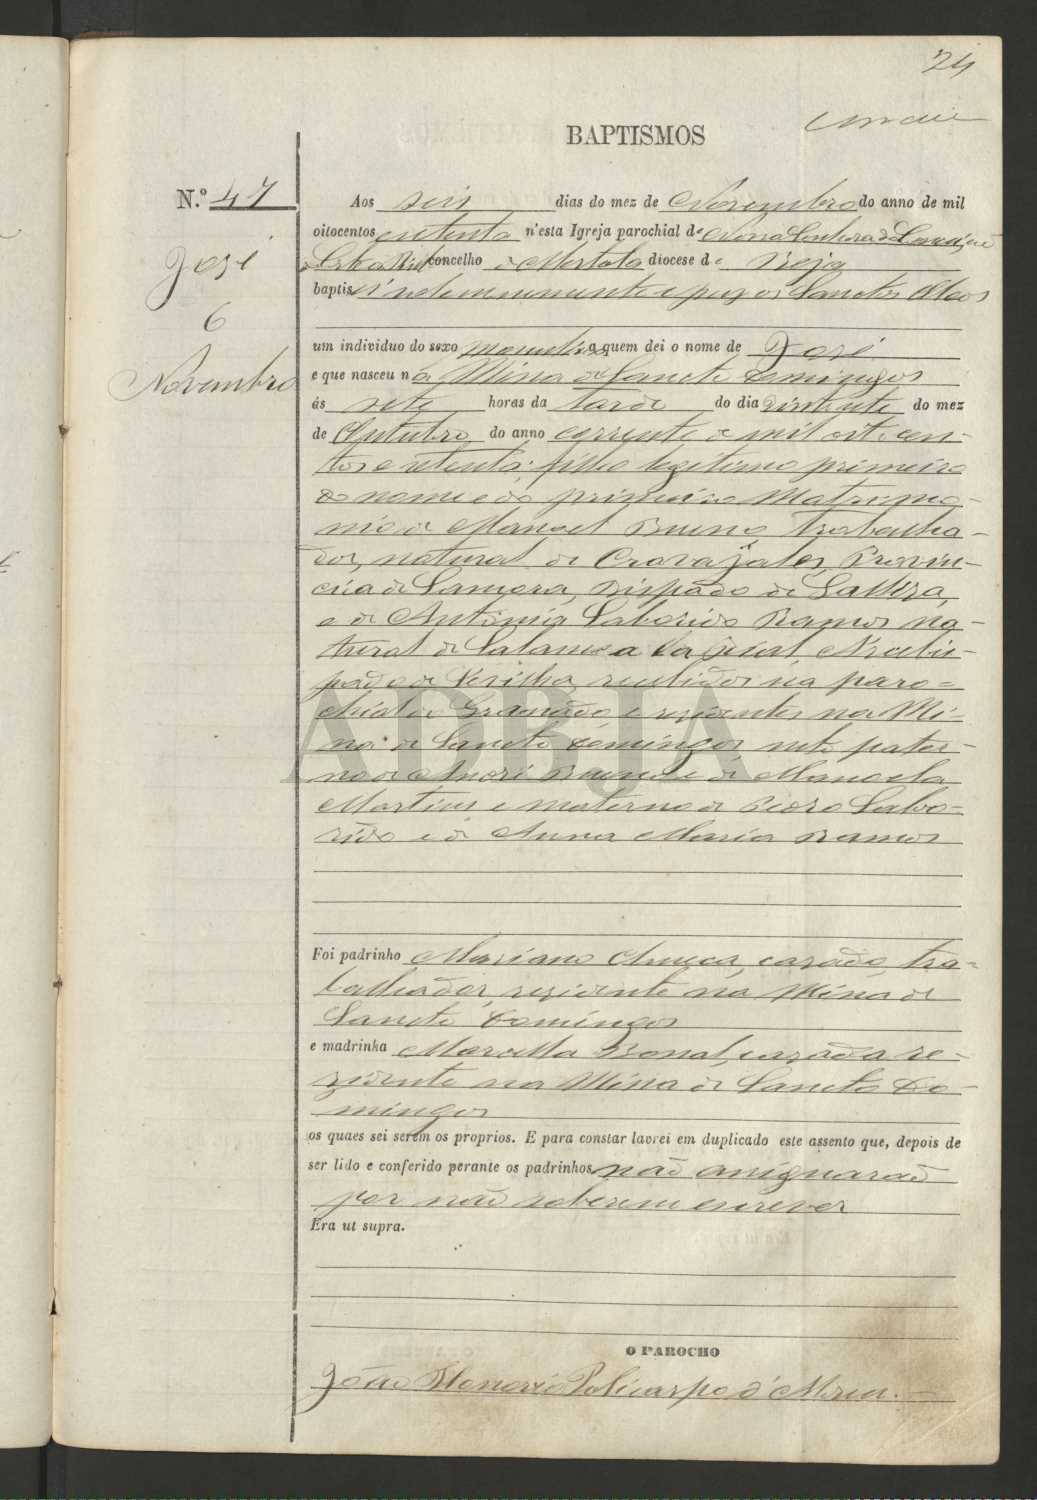 24
BAPTISMOS
N.º 47
José
6
Novembro
Aos seis dias do mez de Novembro do anno de mil
oitocentos oitenta n'esta Igreja parochial de Nossa Senhora da Conceição
concelho de Mertola diocese de Beja
baptisei solemnemente e puz os Sanctos Oleos
um individuo do sexo masculino a quem dei o nome de José
e que nasceu na Mina de Sancto Domingos
ás sete horas da tarde do dia do mez
de Outubro do anno corrente de mil oitocen-
tos e oitenta; filho legitimo primeiro
do nome e do primeiro Matrimo-
nio de Manoel Bueno, trabalha-
dor, natural de Cravajales, Provin-
cia de Samora, Bispado de
e de Antonia Laborido Ramos na-
tural de Salamea la Rial, Arcebis-
pado de Sevilha, recebidos na paro-
chial de Granado, e rezidentes na Mi-
na de Sancto Domingos neto pater-
no de André Bueno e de Manoela
Martins e materno de Pedro Labo-
rido e de Anna Maria Ramos
Foi padrinho Mariano casado, tra-
balhador, rezidente na Mina de
Sancto Domingos
e madrinha Marcella Bonal, cazada re-
zidente na Mina de Sancto Do-
mingos
os quaes sei serem os proprios. E para constar lavrei em duplicado este assento que, depois de
ser lido e conferido perante os padrinhos não assignarão
por não saberem escrever
Era ut supra.
O PAROCHO
João Honorio Policarpo d'
ADBJA